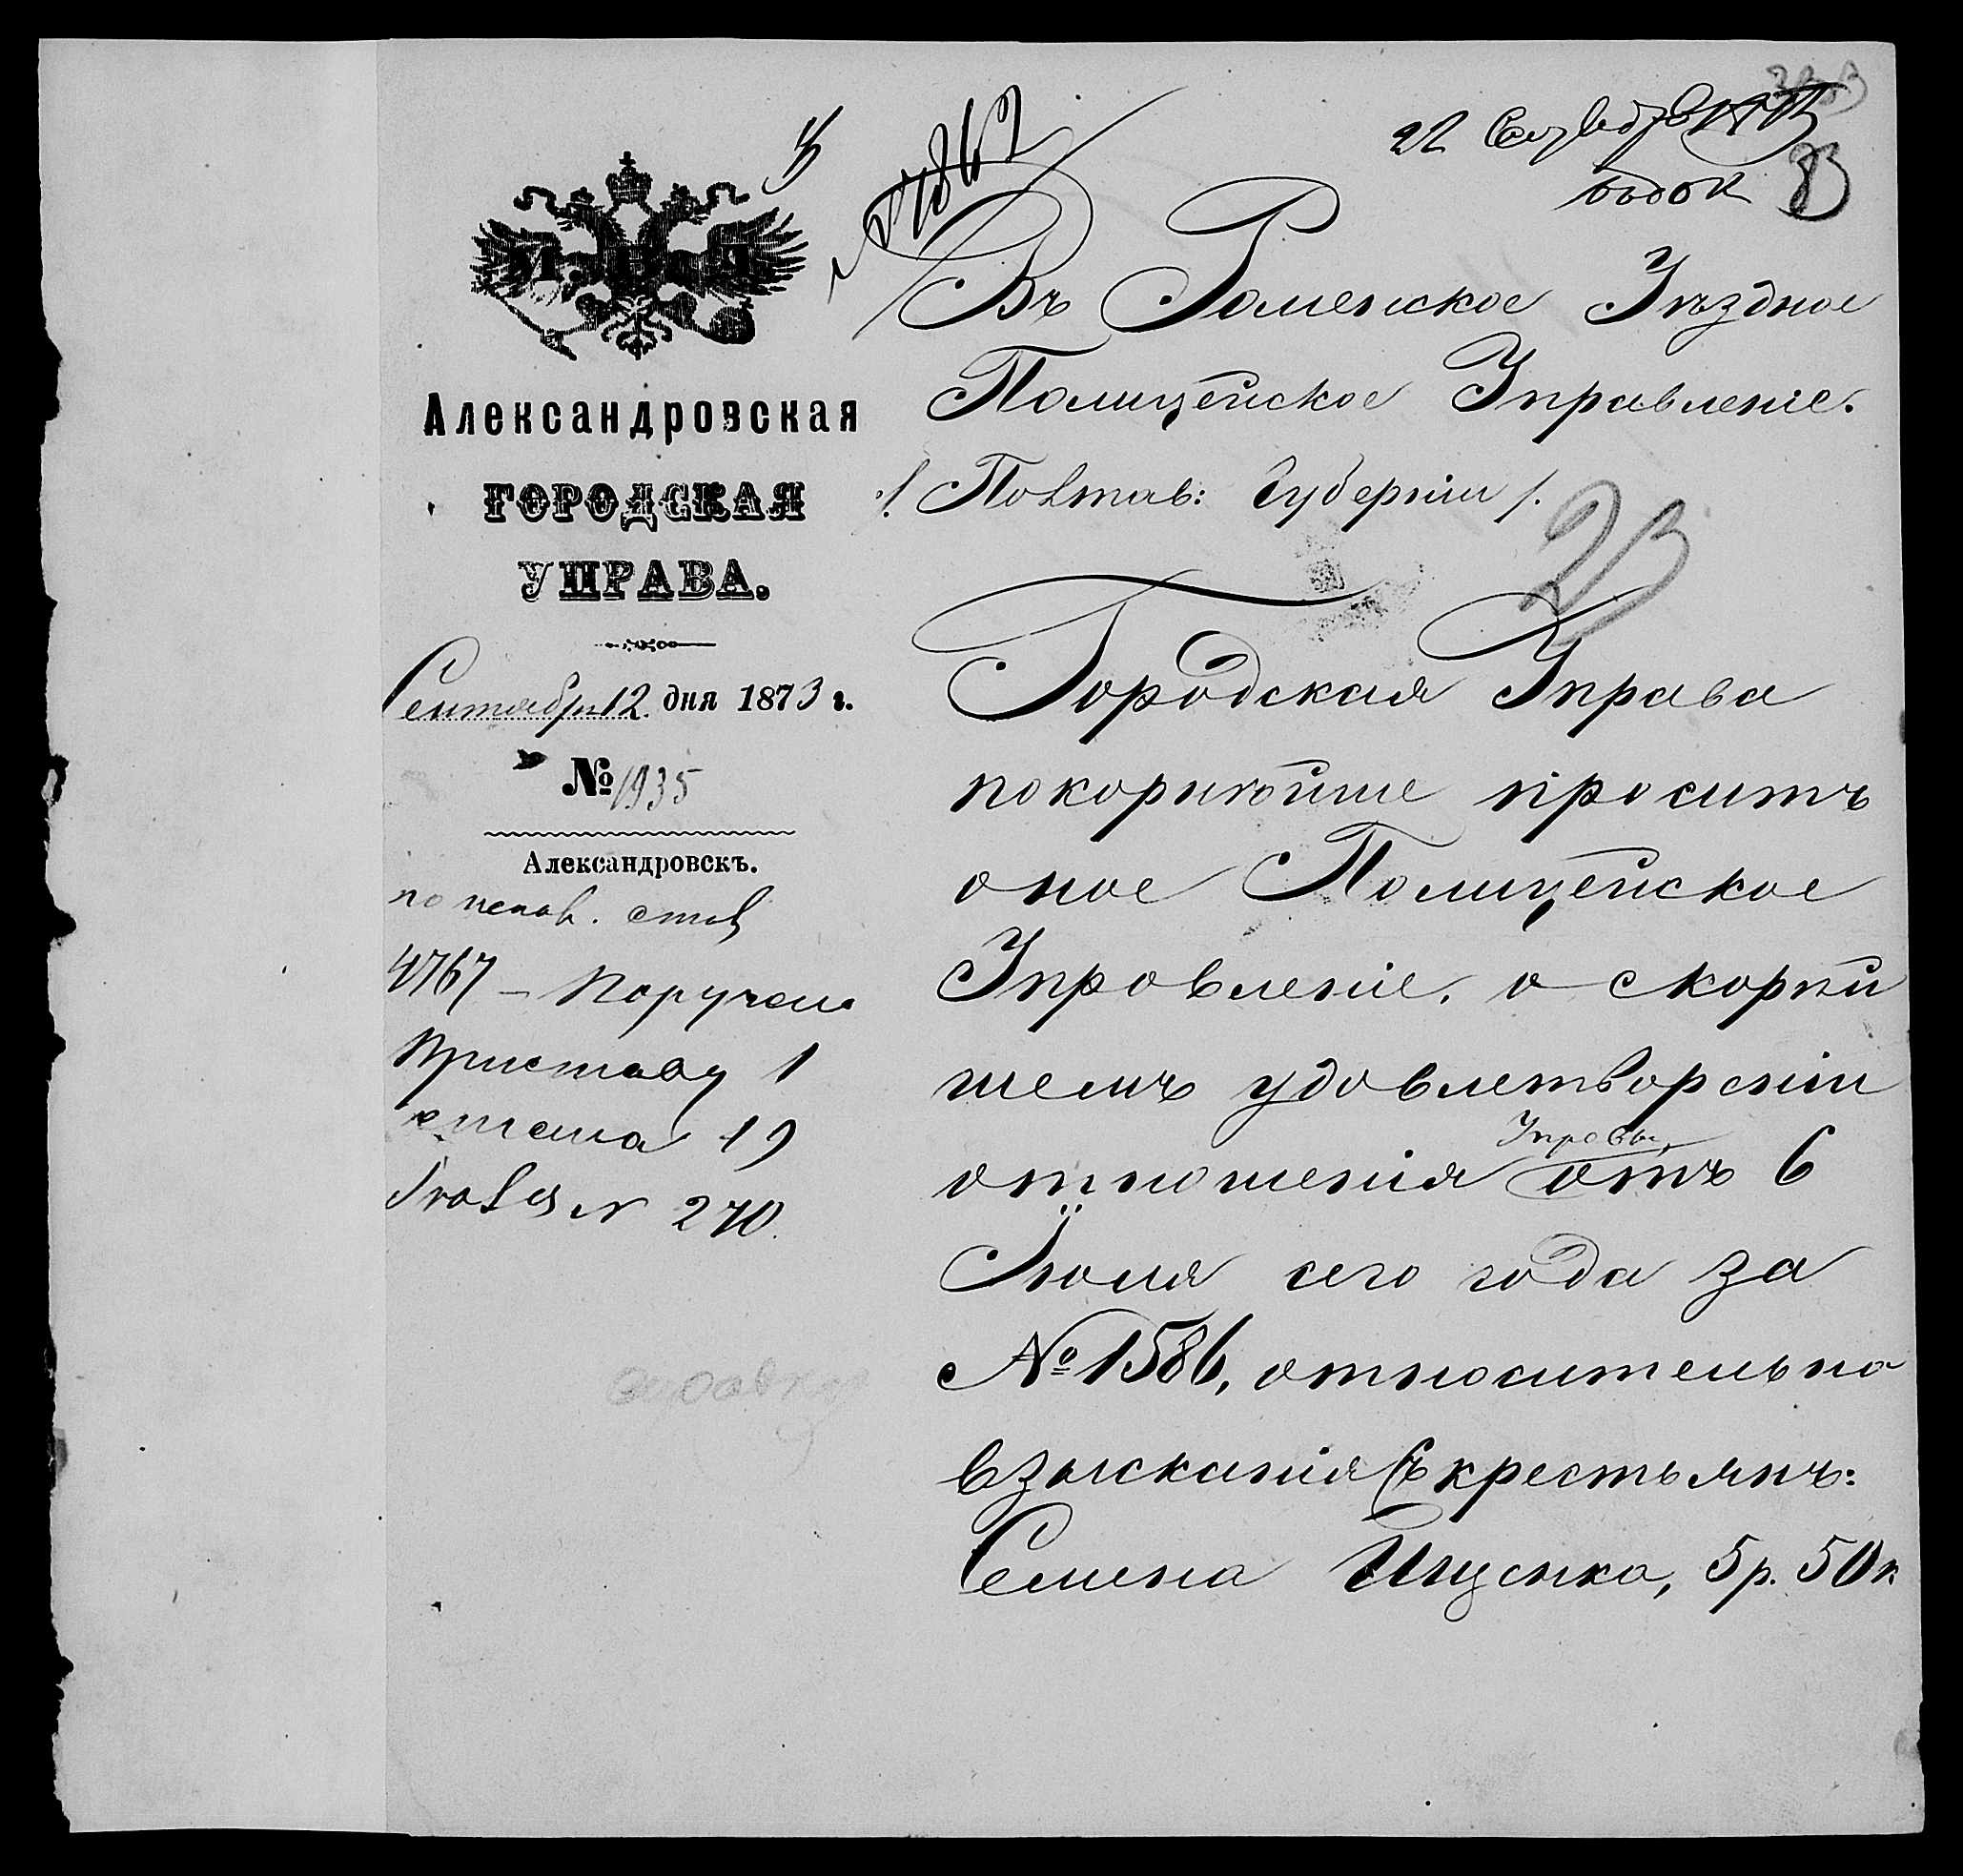 22 Сентября 1873
№ 4862
М. В. Д.
Александровская
ГОРОДСКАЯ
УПРАВА.
Сентября 12 дня 1873 г.
№ 1935
Александровскъ.
4767 – Поручено
Приставу 1
стана 19
№ 270.
справку
83
Въ Роменское Уѣздное
Полицейское Управленіе.
/. Полтав: Губерніи /.
23
Городская Управа
покорнѣйше проситъ
оное Полицейское
Управленіе, о скорѣй
шемъ удовлетвореніи
Управы
отношенія отъ 6
Іюля сего года за
№ 1586, относительно
взысканія съ крестьянъ:
Семена Ищенка, 5 р. 50 к